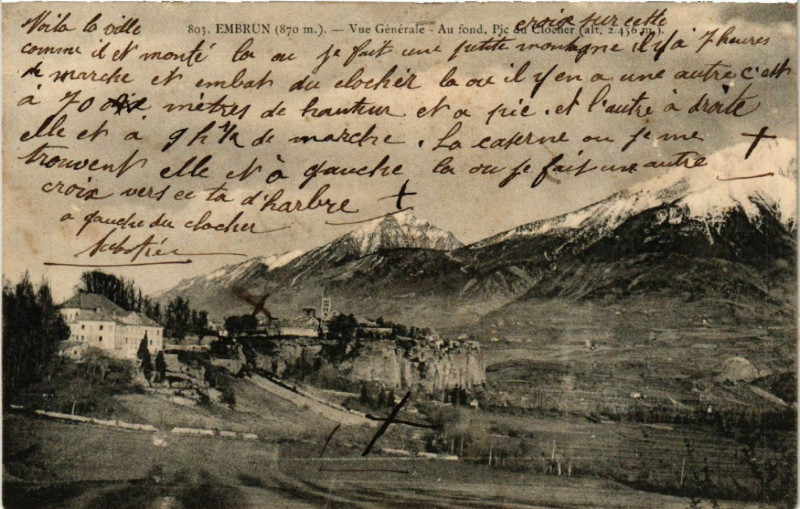 803. EMBRUN (870 m.). — Vue Générale - Au fond, Pic du Clocher (alt. 2.456 m.).
Voila la ville croix sur cette
comme il et monté la ou je fait une petite montagne il y a 7 heures
de marche et embat du clochér la ou il y en a une autre c'est
à 70 mètres de hauteur et a pic. et l'autre à droite
elle et à 9 h ½ de marche. La caserne ou je me
trouvent elle et à gauche la ou je fait une autre
croix vers ce ta d'harbre
a gauche du clocher